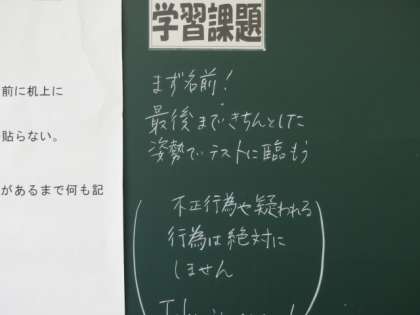 学習課題
前に机上に
貼らない。
があるまで何も記
まず名前!
最後まできちんとした
姿勢でテストに臨もう
不正行為や疑われる
行為は絶対に
しません